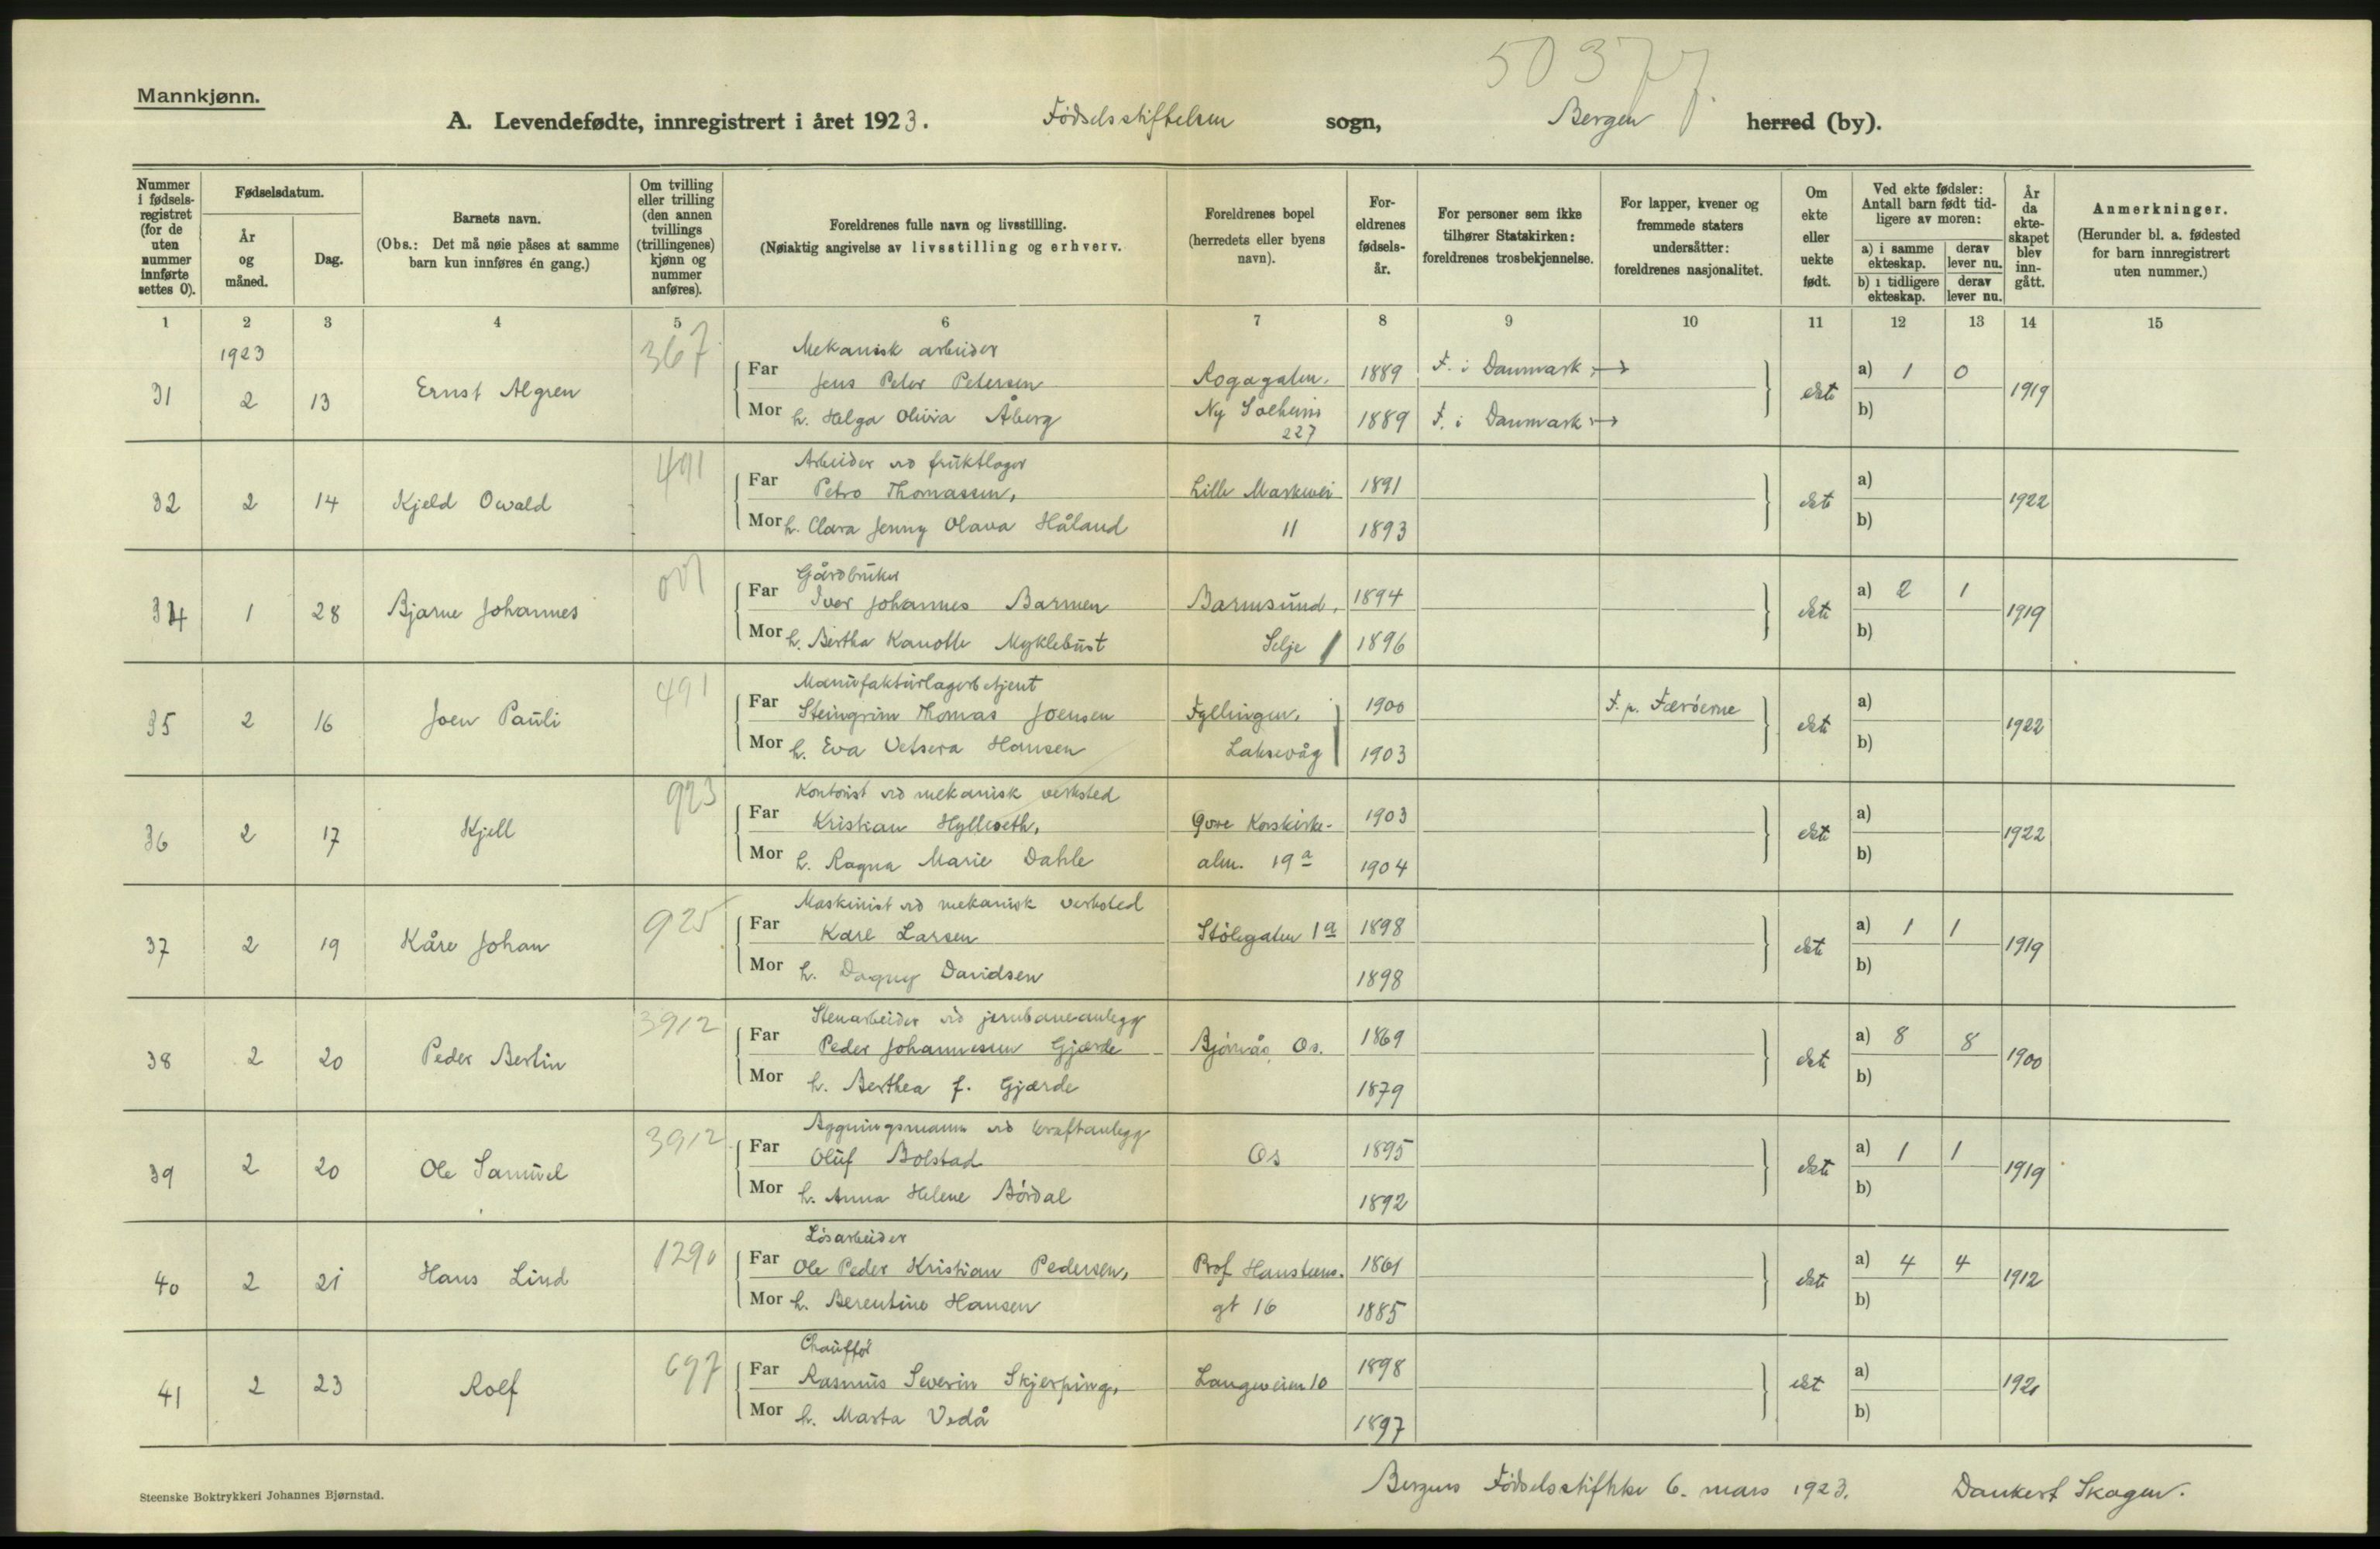 50377
Mannkjønn.
A. Levendefødte, innregistrert i året 1923. Fødselsstiftelsen sogn, Bergen herred (by).
Nummer i fødselsregistret (for de uten nummer innførte settes 0).
Fødselsdatum.
År og måned.
Dag.
Barnets navn.
(Obs.: Det må nøie påses at samme barn kun innføres én gang.)
Om tvilling eller trilling (den annen tvillings (trillingenes) kjønn og nummer anføres).
Foreldrenes fulle navn og livsstilling.
(Nøiaktig angivelse av livsstilling og erhverv.
Foreldrenes bopel (herredets eller byens navn).
Foreldrenes fødselsår.
For personer som ikke tilhører Statskirken: foreldrenes trosbekjennelse.
For lapper, kvener og fremmede staters undersåtter: foreldrenes nasjonalitet.
Om ekte eller uekte født.
Ved ekte fødsler: Antall barn født tidligere av moren:
a) i samme ekteskap.
derav lever nu.
b) i tidligere ekteskap.
derav lever nu.
År da ekteskapet blev inngått.
Anmerkninger.
(Herunder bl. a. fødested for barn innregistrert uten nummer.)
1 2 3 4 5 6 7 8 9 10 11 12 13 14 15
1923 367 Mekanisk arbeider
31 2 13 Ernst Algren Far Jens Peter Petersen Rogagaten. 1889 F. i Danmark → ekte a) 1 0 1919
Mor h. Helga Olivia Åberg Ny Solheim 227 1889 F. i Danmark → b)
491 Arbeider ved fruktlager
32 2 14 Kjeld Owald Far Petro Thomassen, Lille Markevei 1891 ekte a) 1922
Mor h. Clara Jenny Olava Håland 11 1893 b)
001 Gårdbruker
34 1 28 Bjarne Johannes Far Iver Johannes Barmen Barmsund, 1894 ekte a) 2 1 1919
Mor h. Bertha Kanotte Myklebust Selje 1896 b)
491 Manufakturlagerbetjent
35 2 16 Joen Pauli Far Steingrim Thomas Joensen Fyllingen, 1900 F. p. Færøerne ekte a) 1922
Mor h. Eva Vetsera Hansen Laksevåg 1903 b)
923 Kontorist ved mekanisk verksted
36 2 17 Kjell Far Kristian Hylleseth, Øvre Korskirke- 1903 ekte a) 1922
Mor h. Ragna Marie Dahle alm. 19 a 1904 b)
925 Maskinist ved mekanisk verksted
37 2 19 Kåre Johan Far Karl Larsen Stølegaten 1 a 1898 ekte a) 1 1 1919
Mor h. Dagny Davidsen 1898 b)
3912 Stenarbeider ved jernbaneanlegg
38 2 20 Peder Bertin Far Peder Johannesen Gjærde Bjørnås, Os. 1869 ekte a) 8 8 1900
Mor h. Berthea f. Gjærde 1879 b)
3912 Bygningsmann ved kraftanlegg
39 2 20 Ole Samuel Far Oluf Bolstad Os 1895 ekte a) 1 1 1919
Mor h. Anna Helene Bórdal 1892 b)
1290 Løsarbeider
40 2 21 Hans Lind Far Ole Peder Kristian Pedersen, Prof Hansteens. 1861 ekte a) 4 4 1912
Mor h. Berentine Hansen gt 16 1885 b)
697 Chauffør
41 2 23 Rolf Far Rasmus Severin Skjerping, Langeveien 10 1898 ekt a) 1921
Mor h. Marta Vedå 1897 b)
Steenske Boktrykkeri Johannes Bjørnstad.
Bergens Fødselsstiftelse 6. mars 1923. Dankert Skagen.